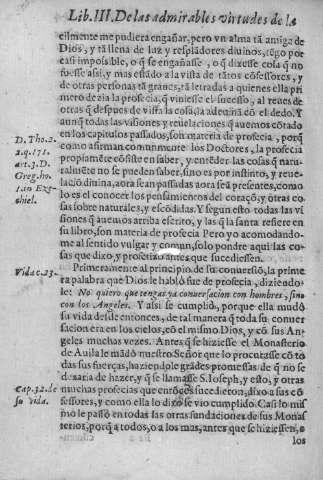 Lib. III. De las admirables virtudes de la
cilmente me pudiera engañar, pero vn alma tã amiga de
Dios, y tã llena de luz y resplãdores diuinos, tẽgo por
casi impossible, o q̃ se engañasse, o q̃ dixesse cosa q̃ no
fuesse assi, y mas estãdo a la vista de tãtos cõfessores, y
de otras personas tã graues, tã letradas a quienes ella pri
mero dezia la profecia, q̃ viniesse el sucesso, al reues de
otras q̃ despues de vista la cosa, la adeuinã cõ el dedo. Y
aunq̃ todas las visiones y reuelaciones q̃ auemos cõtado
en los capitulos passados, son materia de profecia, porq̃
D. Tho. 2.
2. q. 171.
art. 3. D.
Greg. ho.
1. in Eze-
chiel.
como afirman comunmente los Doctores, la profecia
propiamẽte cõsiste en saber, y entẽder las cosas q̃ natu-
ralmẽte no se pueden saber, sino es por instinto, y reue-
laciõ diuina, aora sean passadas aora seã presentes, como
lo es el conocer los pensamientos del coraçõ, y otras co
sas sobre naturales, y escõdidas. Y segun esto todas las vi
siones q̃ auemos arriba escrito, y las q̃ la santa refiere en
su libro, son materia de profecia. Pero yo acomodando-
me al sentido vulgar y comun, solo pondre aqui las co-
sas que dixo, y profetizò antes que sucediessen.
Vida c. 23.
Primeramente al principio de su conuersiõ, la prime
ra palabra que Dios le hablò fue de profecia, diziendo-
le: No quiero que tengas ya conuersacion con hombres, sino
con los Angeles. Y assi se cumpliò, porque ella mudò
su vida desde entonces, de tal manera q̃ toda su conuer
sacion era en los cielos, cõ el mismo Dios, y cõ sus An-
geles muchas vezes. Antes q̃ se hiziesse el Monasterio
de Auila le mãdò nuestro Señor que lo procurasse cõ to
das sus fuerças, haziendole grãdes promessas de q̃ no se
dexaria de hazer, y q̃ se llamasse S. Ioseph, y esto, y otras
Cap. 32. de
su vida.
muchas profecias que entõces sucedieron, dixo a sus cõ
fessores, y como ella lo dixo se vio cumplido. Casi lo mis
mo le passò en todas las otras fundaciones de sus Monas
terios, porq̃ a todos, o a los mas, antes que se hiziessen, o
los